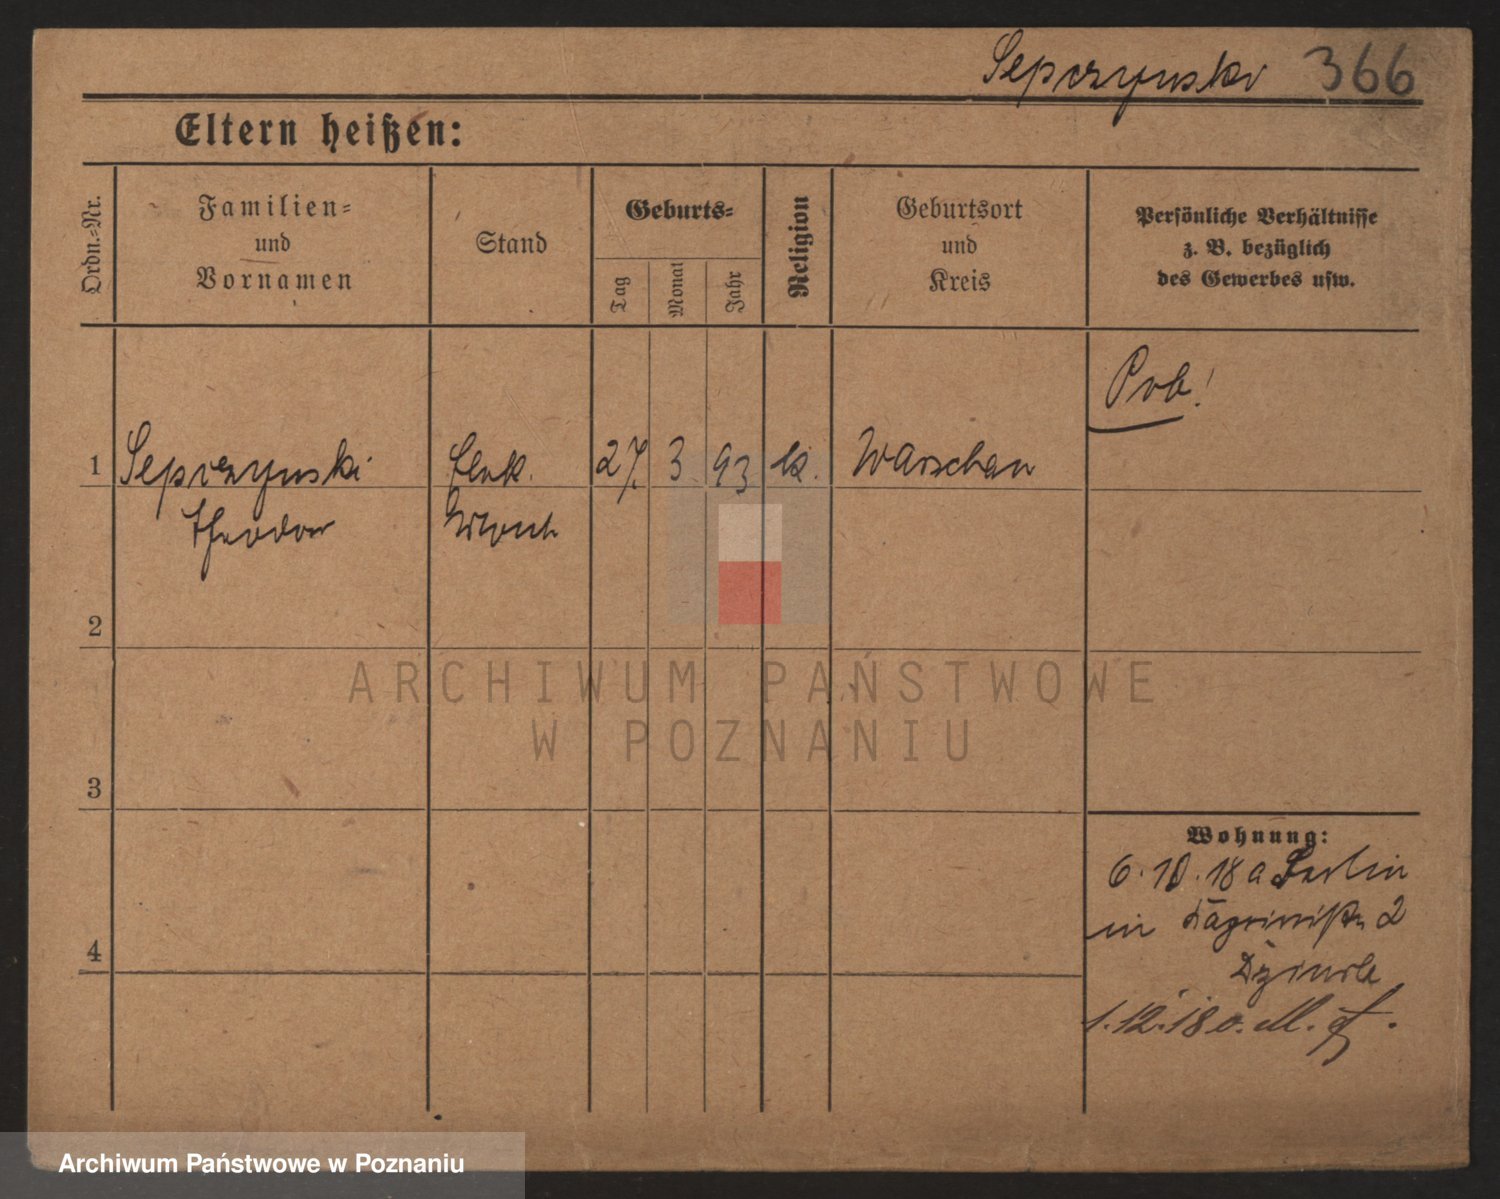 Sepczynski 366
Eltern heißen:
Ordn.-Nr.
Familien-
und
Vornamen
Stand
Geburts-
Tag
Monat
Jahr
Religion
Geburtsort
und
Kreis
Persönliche Verhältnisse
z. B. bezüglich
des Gewerbes usw.
1 Sepczynski 27 3 93 k. Warschau
Theodor
2
3
4
Wohnung:
6.10.18 a Berlin
in 2
1.12.18 o. M.
ARCHIWUM PAŃSTWOWE
W POZNANIU
Archiwum Państwowe w Poznaniu